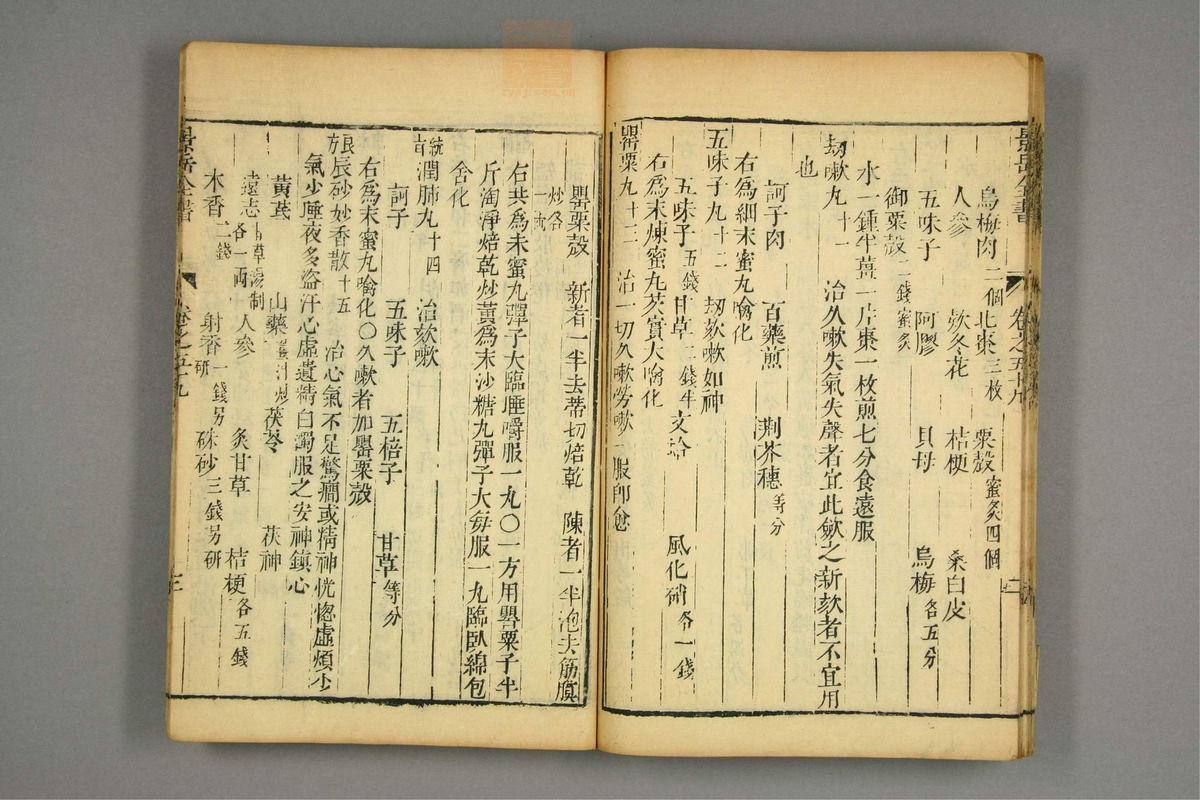 景岳全書
卷之五十九
烏梅肉二個 北棗三枚 粟殼蜜炙四個
人參 欵冬花 桔梗 桑白皮
五味子 阿膠 貝母 烏梅各五分
御粟殼二錢蜜炙
水一鍾半薑一片棗一枚煎七分食遠服
劫嗽丸十一 治久嗽失氣失聲者宜此歛之新欬者不宜用
也
訶子肉 百藥煎 荆芥穗等分
右爲細末蜜丸噙化
五味子丸十二 刼欬嗽如神
五味子五錢 甘草二錢半 文蛤 風化硝各一錢
右爲末煉蜜丸芡實大噙化
罌粟丸十三 治一切久嗽勞嗽一服即愈
罌粟殼 新者一半去蒂切焙乾 陳者一半泡去筋膜
炒各
一兩
右共爲末蜜丸彈子大臨睡嚼服一丸〇一方用罌粟子半
斤淘淨焙乾炒黃爲末沙糖丸彈子大每服一丸臨臥綿包
含化
統旨潤肺丸十四 治欬嗽
訶子 五味子 五棓子 甘草等分
右爲末蜜丸噙化〇久嗽者加罌粟殼
良方辰砂妙香散十五 治心氣不足驚癎或精神恍惚虛煩少
氣少睡夜多盜汗心虛遺精白濁服之安神鎮心
黃芪 山藥薑汁炒 茯苓 茯神
遠志甘草湯制各一兩 人參 桔梗各五錢
木香二錢 射香一錢另研 硃砂三錢另研
炙甘草
景岳全書
卷之五十九